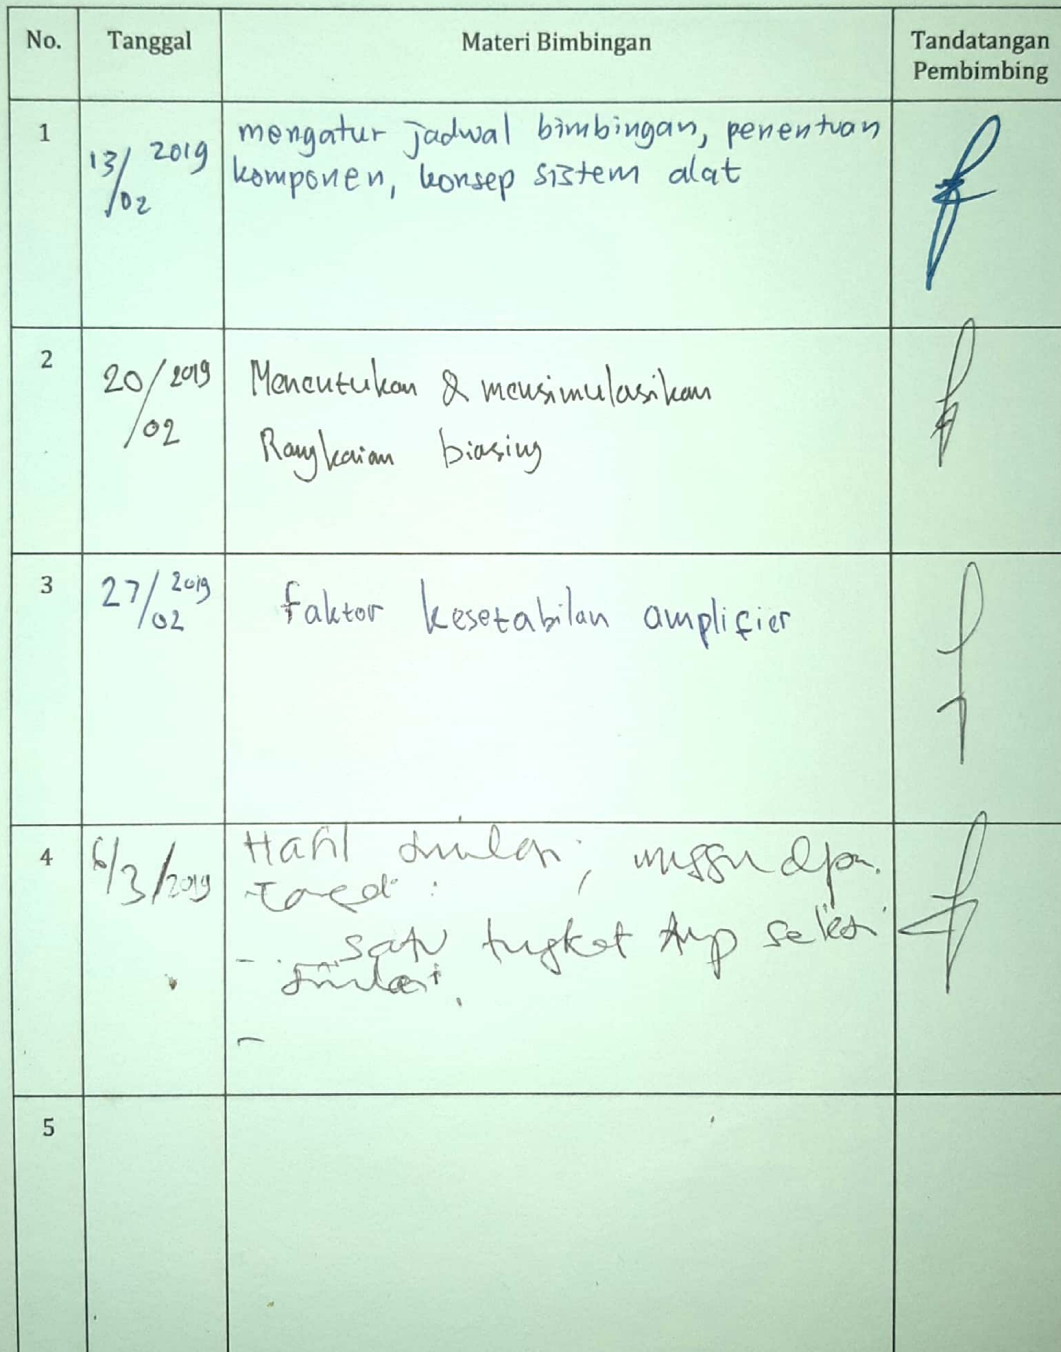 No. Tanggal Materi Bimbingan Tandatangan
Pembimbing
1
13/02 2019
mengatur jadwal bimbingan, penentuan
komponen, konsep sistem alat
2
20/02 2019
Menentukan & mensimulasikan
Rangkaian biasing
3
27/02 2019
faktor kesetabilan amplifier
4
6/3/2019
Hasil simulasi, minggu dpn.
Target :
- satu tingkat Amp
simulasi.
-
5